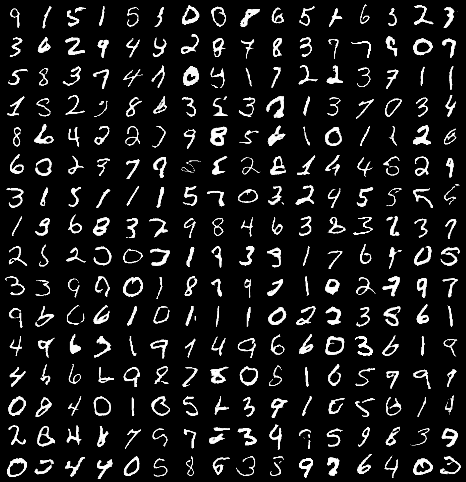 9 1 5 1 5 3 0 0 8 6 5 6 3 2 3
3 6 2 9 4 4 2 8 7 8 3 7 7 9 0 7
5 8 3 7 4 1 0 4 1 7 2 2 3 7 1 1
1 5 2 8 6 3 5 3 2 1 3 7 0 3 4
8 6 4 2 2 7 9 8 5 6 1 0 1 1 2 6
6 0 2 9 7 9 5 2 8 1 4 4 8 2 9
3 1 5 1 1 1 5 7 0 3 2 4 5 5 5 6
1 3 6 8 3 2 9 8 4 6 3 8 3 2 3 7
2 5 2 0 0 7 1 9 3 9 1 7 6 9 0 5
3 3 9 0 0 1 8 7 9 7 1 0 2 7 9 7
9 6 6 6 1 0 1 1 1 1 0 2 2 3 8 6 1
4 9 6 3 1 9 1 4 9 6 6 0 3 6 1 9
4 6 6 6 9 2 7 8 0 5 1 6 5 7 9 9
0 8 4 0 1 8 5 2 3 9 1 0 5 6 1 4
2 8 4 8 7 9 7 5 3 4 9 5 9 8 3 9
0 5 4 4 0 5 8 6 3 8 9 7 6 4 0 3